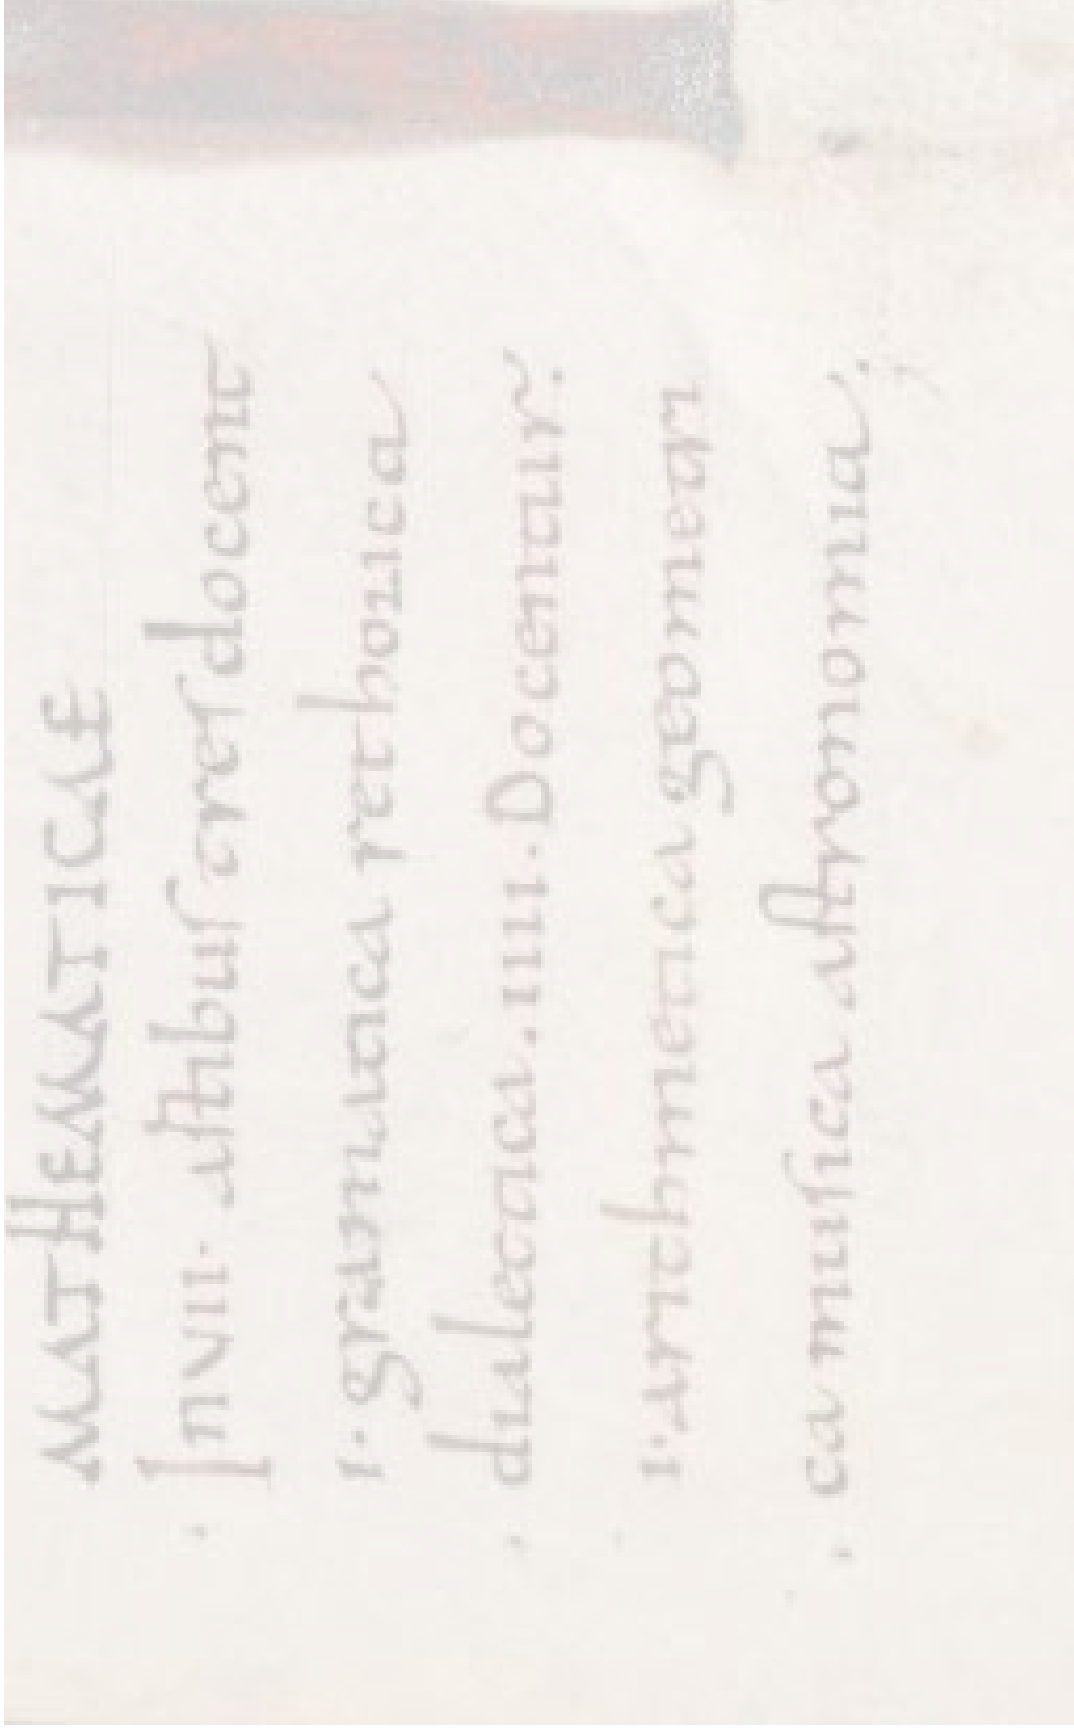 MATHEMATICAE
In VII· astibus tres docent
I· gramatica rethorica
dialectica. IIII. Docentur.
I· arithmetica geometri
ca musica astronomia;